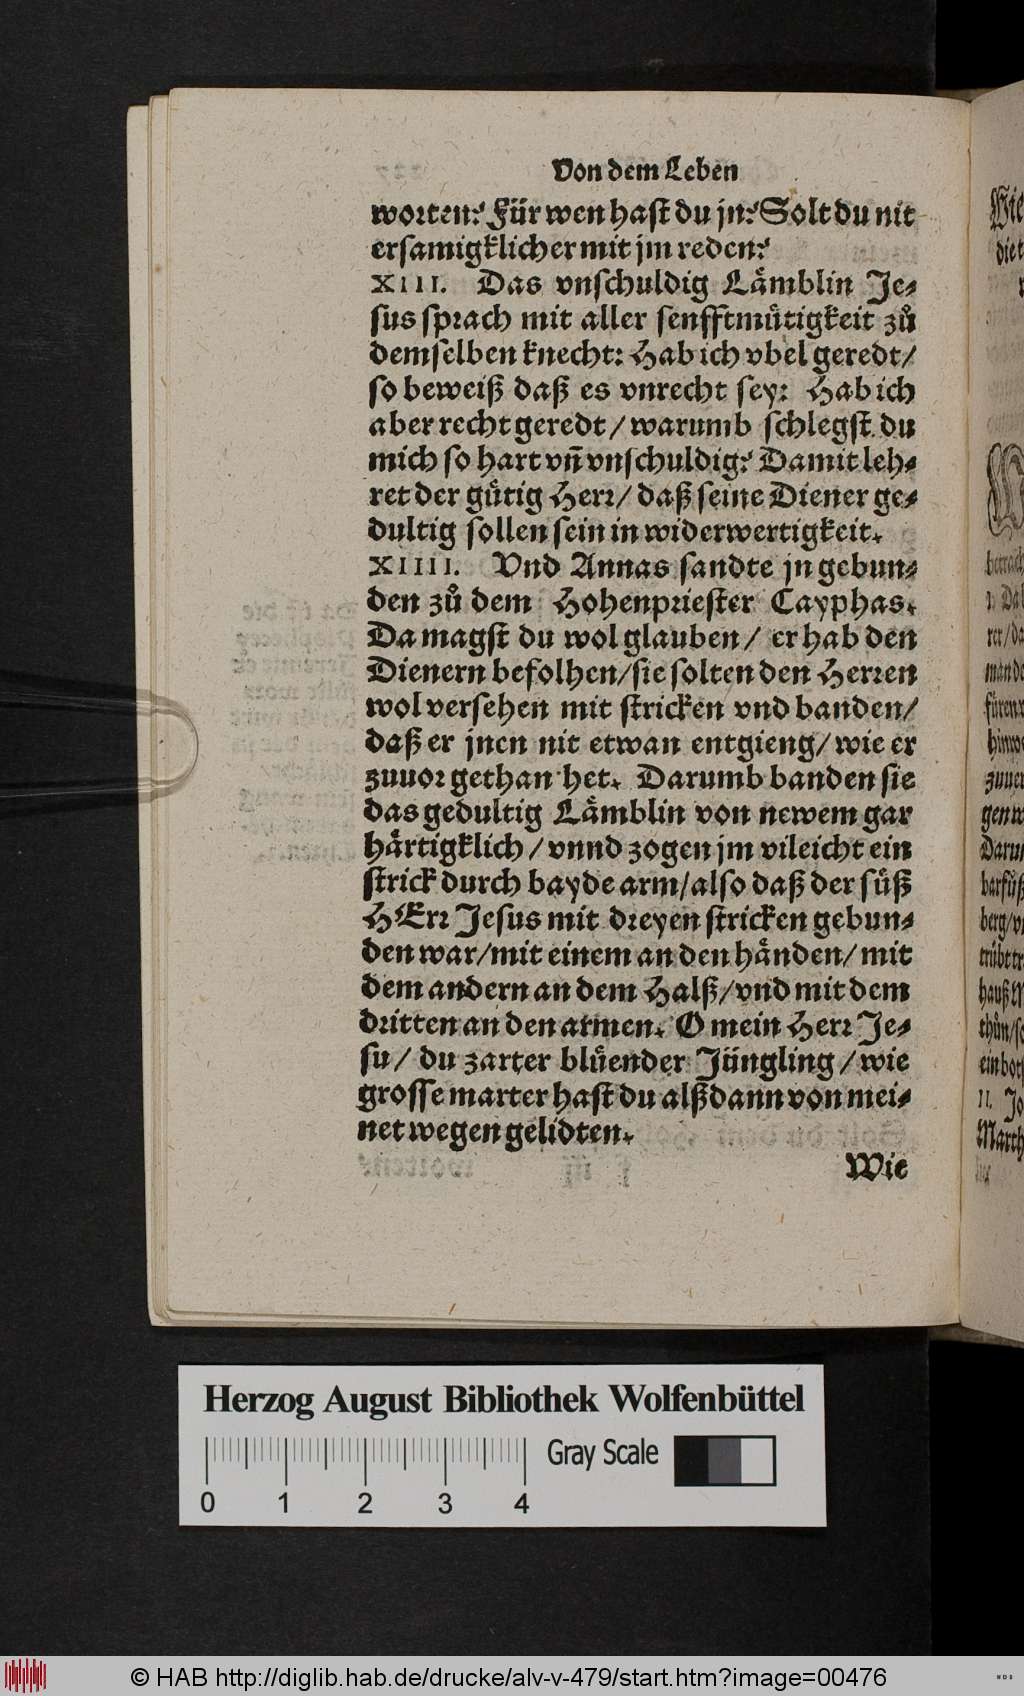 Von dem Leben
worten? Für wen hast du jn? Solt du nit
ersamigklicher mit jm reden?
XIII. Das vnschuldig Lämblin Je-
sus sprach mit aller senfftmütigkeit zů
demselben knecht: Hab ich vbel geredt/
so beweiß daß es vnrecht sey: Hab ich
aber recht geredt / warumb schlegst du
mich so hart vñ vnschuldig? Damit leh-
ret der gütig Herr/ daß seine Diener ge-
dultig sollen sein in widerwertigkeit.
XIIII. Vnd Annas sandte jn gebun-
den zů dem Hohenpriester Cayphas.
Da magst du wol glauben / er hab den
Dienern befolhen/sie solten den Herren
wol versehen mit stricken vnd banden/
daß er jnen nit etwan entgieng/ wie er
zuuor gethan het. Darumb banden sie
das gedultig Lämblin von newem gar
härtigklich / vnnd zogen jm vileicht ein
strick durch bayde arm/also daß der süß
HErr Jesus mit dreyen stricken gebun-
den war/mit einem an den händen/ mit
dem andern an dem Halß/vnd mit dem
dritten an den armen. O mein Herr Je-
su / du zarter blüender Jüngling / wie
grosse marter hast du alßdann von mei-
net wegen gelidten.
Wie
Herzog August Bibliothek Wolfenbüttel
Gray Scale
0 1 2 3 4
© HAB http://diglib.hab.de/drucke/alv-v-479/start.htm?image=00476